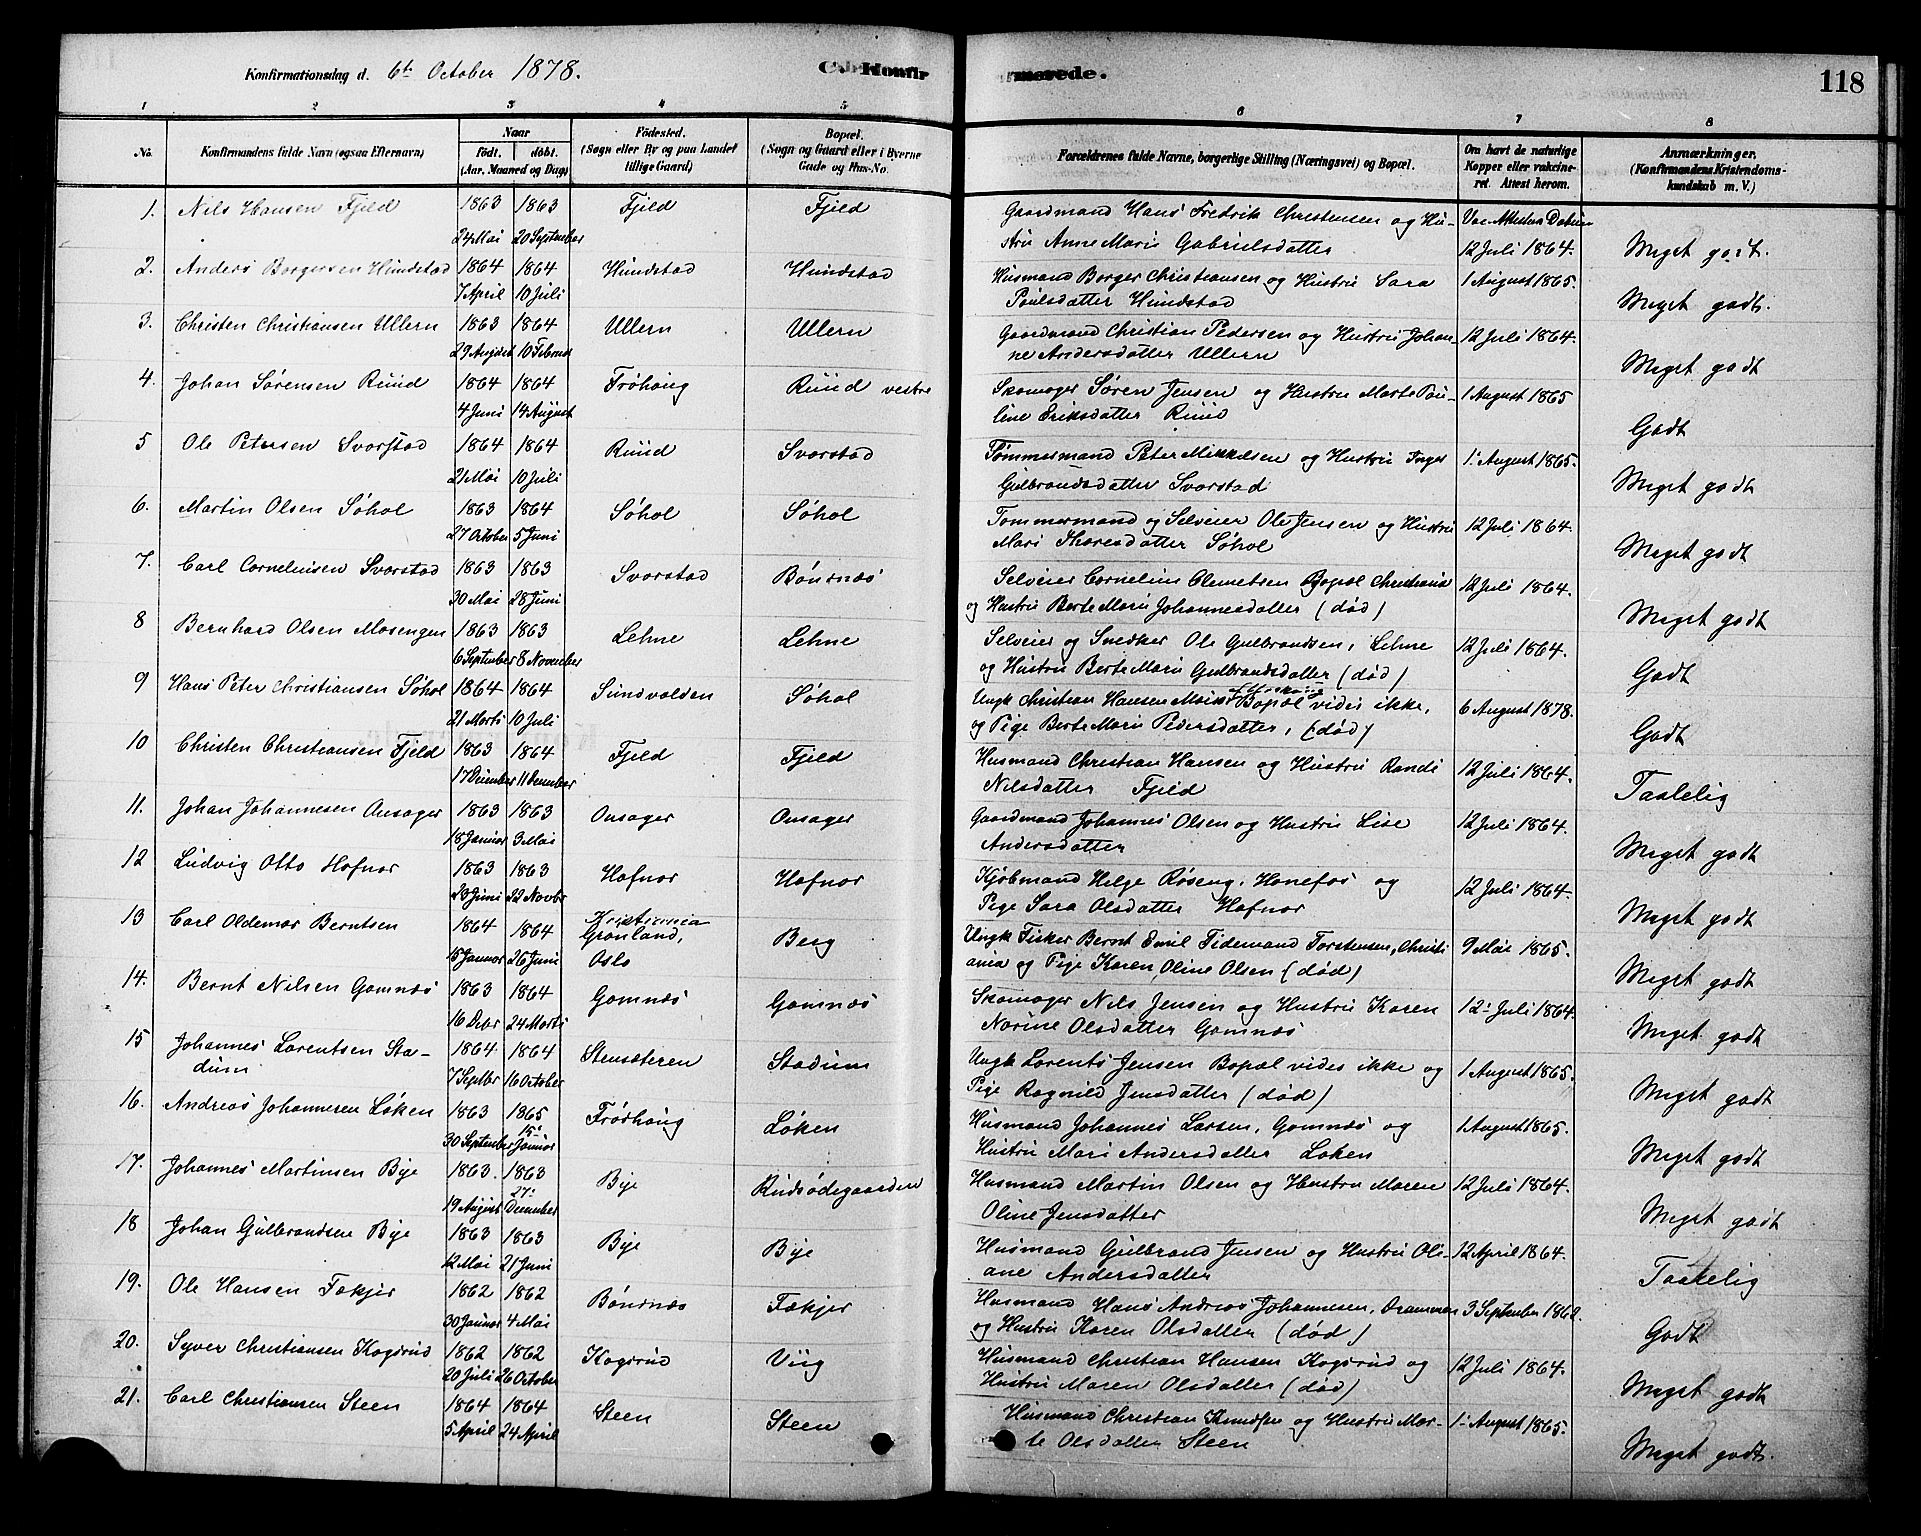 Konfirmationsdag d. 6te October 1878. C. Konfir merede. 118
1 2 3 4 5 6 7 8
No. Konfirmandens fulde Navn (ogsaa Efternavn) Naar født. døbt. (Aar, Maaned og Dag) Fødested. (Sogn eller By og paa Landet tillige Gaard) Bopæl. (Sogn og Gaard eller i Byerne Gade og Hus-No. Forældrenes fulde Navne, borgerlige Stilling (Næringsvei) og Bopæl. Om havt de naturlige Kopper eller vakcineret. Attest herom. Anmærkninger. (Konfirmandens Kristendomskundskab m. V.)
1. Nils Hansen Fjeld 1863 1863 Fjeld Fjeld Gaardmand Hans Fredrik Christensen og Hu-
24 Mai 20 September stru Anne Marie Gabrielsdatter 12 Juli 1864. Meget godt.
2. Anders Borgersen Hundstad 1864 1864 Hundstad Hundstad Husmand Borger Christiansen og Hustru Sara 1 August 1865.
7 April 10 Juli Poulsdatter Hundstad Meget godt.
3. Christen Christiansen Ullern 1863 1864 Ullern Ullern Gaardmand Christian Pedersen og Hustru Johan- 12 Juli 1864.
29 August 10 Februar ne Andersdatter Ullern Meget godt
4. Johan Sørensen Ruud 1864 1864 Frøhaug Ruud vestre Skomager Søren Jensen og Hustru Marte Pau- 1 August 1865
4 Juni 14 August line Eriksdatter Ruud Godt
5 Ole Petersen Svarstad 1864 1864 Ruud Svarstad Tømmermand Peter Mikkelsen og Hustru Inger 1. August 1865.
21 Mai 10 Juli Gulbrandsdatter Svarstad Meget godt
6. Martin Olsen Søhol 1863 1864 Søhol Søhol Tømmermand og Selveier Ole Jensen og Hustru 12 Juli 1864.
27 October 5 Juni Mari Thoresdatter Søhol Meget godt
7. Carl Corneliusen Svarstad 1863 1863 Svarstad Bønsnæs Selveier Cornelius Clemetsen Bopæl Christiania 12 Juli 1864.
30 Mai 28 Juni og Hustru Berte Marie Johannesdatter (død) Meget godt
8 Bernhard Olsen Mosengen 1863 1863 Lehne Lehne Selveier og Snedker Ole Gulbrandsen, Lehne 12 Juli 1864.
6 September 8 November og Hustru Berte Marie Gulbrandsdatter (død) Godt
9 Hans Peter Christiansen Søhol 1864 1864 Sundvolden Søhol Ungk Christian Hansen Bopæl vides ikke, 6 August 1878.
21 Marts 10 Juli og Pige Berte Marie Pedersdatter, (død) Godt
10 Christen Christiansen Fjeld 1863 1864 Fjeld Fjeld Husmand Christian Hansen og Hustru Randi 12 Juli 1864.
17 Deiember 11 December Nilsdatter Fjeld Taalelig
11. Johan Johannesen Onsager 1863 1863 Onsager Onsager Gaardmand Johannes Olsen og Hustru Lise 12 Juli 1864.
18 Januar 3 Mai Andersdatter Meget godt
12 Ludvig Otto Hafnor 1863 1863 Hafnor Hafnor Kjøbmand Helge Røseng, Hønefos og 12 Juli 1864.
20 Juni 22 Novbr Pige Sara Olsdatter Hafnor Meget godt
13 Carl Oldemar Berntsen 1864 1864 Kristiania Grønland, Oslo Berg Ungk Fisker Bernt Emil Tidemand Torstensen, Christi 9 Mai 1865.
15 Januar 26 Juni ania og Pige Karen Oline Olsen (død) Meget godt
14. Bernt Nilsen Gomnæs 1863 1864 Gomnæs Gomnæs Skomager Nils Jensen og Hustru Karen 12. Juli 1864.
16 Debr 24 Marts Norine Olsdatter Gomnæs Meget godt
15 Johannes Larentsen Sta- 1864 1864 Stensæteren Stadum Ungk Lorents Jensen Bopæl vides ikke og 1 August 1865.
dum 7 Septbr 16 October Pige Ragnild Jensdatter (død) Meget godt
16. Andreas Johannesen Løken 1863 1865 Frødhaug Løken Husmand Johannes Larsen, Gomnæs og 1 August 1865.
30 September 15. Januar Hustru Mari Andersdatter Løken Meget godt
17. Johannes Martinsen Bye 1863. 1863 Bye Rudsødegaarden Husmand Martin Olsen og Hustru Maren 12 Juli 1864.
19 August 27. December Oline Jensdatter Meget godt
18 Johan Gulbrandsen Bye 1863 1863 Bye Bye Husmand Gulbrand Jensen og Hustru Oli- 12 April 1864.
12 Mai 21 Juni ane Andersdatter Taalelig
19. Ole Hansen Fækjer 1862 1862 Bønsnæs Fækjer Husmand Hans Andreas Johannesen, Drammen 3 September 1862.
30 Januar 4 Mai og Hustru Karen Olsdatter (død) Godt
20. Syver Christiansen Kogsrud 1862 1862 Kogsrud Viig Husmand Christian Hansen Kogsrud og 12 Juli 1864.
20 Juli 26 October Hustru Maren Olsdatter (død) Meget godt
21. Carl Christiansen Steen 1864 1864 Steen Steen Husmand Christian Knudsen og Hustru Mar- 1. August 1865.
5 April 24 April te Olsdatter Steen Meget godt.